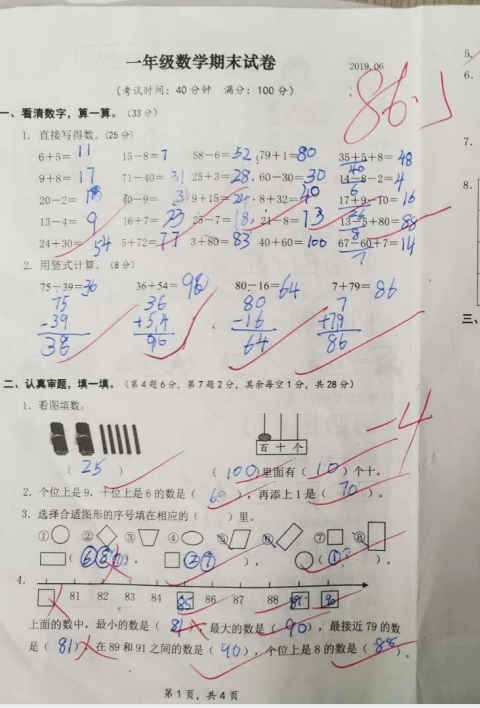 一年级数学期末试卷
2019.06
(考试时间：40分钟 满分：100分)
86.5
一、看清数字，算一算。(33分)
1. 直接写得数。(25分)
6+5=11 15-8=7 58-6=52 79+1=80 35+5+8=48
9+8=17 71-40=31 25+3=28 60-30=30 14-8-2=4
20-2=18 40-9=31 9+15=24 8+32=40 17+9-10=16
13-4=9 16+7=23 25-7=18 21-8=13 13-5+80=88
24+30=54 5+72=77 3+80=83 40+60=100 67-60+7=14
2. 用竖式计算。(8分)
75-39=36 36+54=90 80-16=64 7+79=86
75 36 80 7
-39 +54 -16 +79
36 90 64 86
二、认真审题，填一填。(第4题6分，第7题2分，其余每空1分，共28分)
-4
1. 看图填数。
百 十 个
(25) (100)里面有(10)个十。
2. 个位上是9，十位上是6的数是(69)，再添上1是(70)。
3. 选择合适图形的序号填在相应的( )里。
① ② ③ ④ ⑤ ⑥ ⑦ ⑧
4.
81 82 83 84 85 86 87 88 89 90
上面的数中，最小的数是(81)，最大的数是(90)，最接近79的数
是(81)，在89和91之间的数是(90)，个位上是8的数是(88)。
第1页，共4页
5.
6.
7.
8.
三、